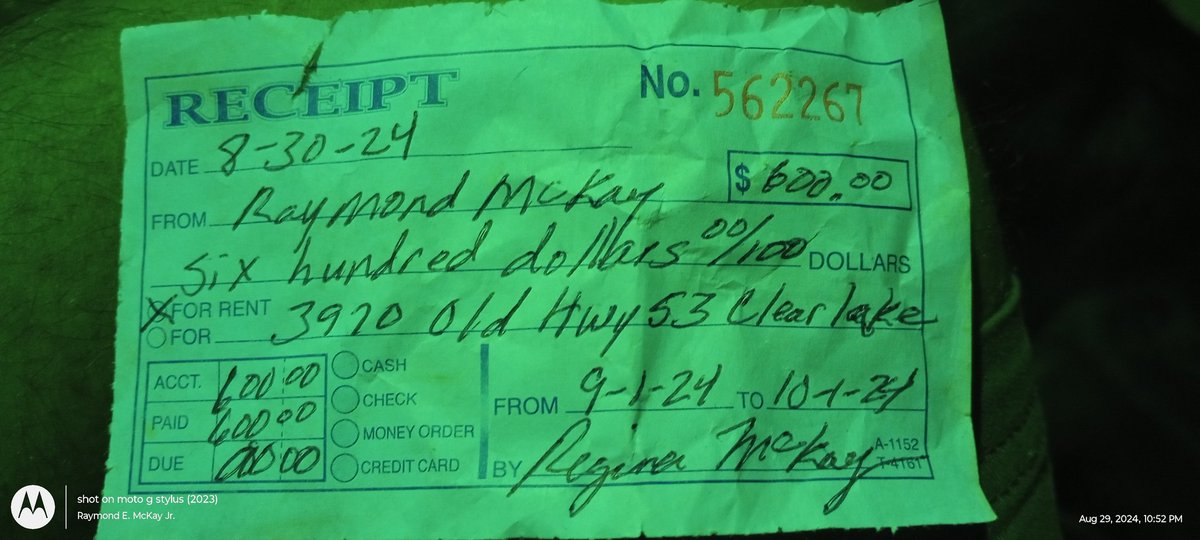 RECEIPT No. 562267
DATE 8-30-24
FROM Raymond McKay $ 600.00
six hundred dollars 00/100 DOLLARS
X FOR RENT 3970 Old Hwy 53 Clearlake
FOR
ACCT. 600 00
PAID 600 00
DUE 00 00
CASH
CHECK
MONEY ORDER
CREDIT CARD
FROM 9-1-24 TO 10-1-24
BY Regina McKay
A-1152
T-4161
shot on moto g stylus (2023)
Raymond E. McKay Jr.
Aug 29, 2024, 10:52 PM